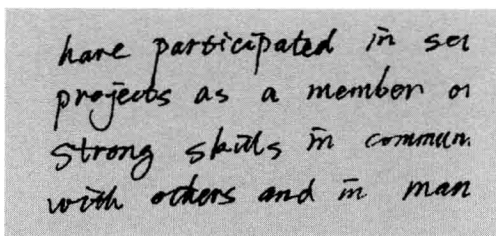 have participated in
projects as a member
strong skills in commun
with others and in man